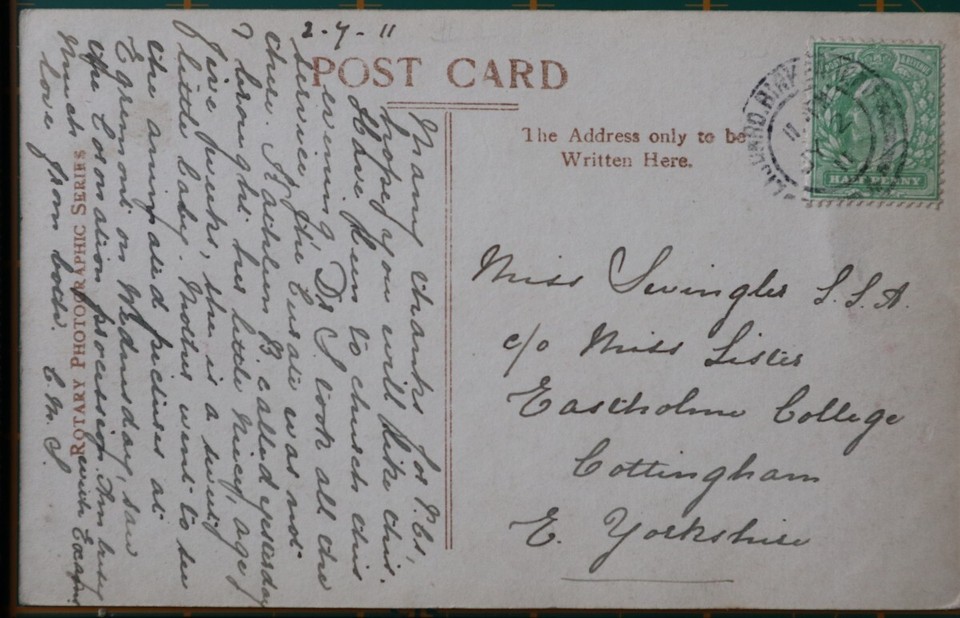 2-7-11
POST CARD
The Address only to be
Written Here.
HALFPENNY
Miss Swingler S.S.A.
c/o Miss Lister
Eastholme College
Cottingham
E. Yorkshire
Many thanks for P.Cs',
hope you will like this.
Have been to church this
evening, Dr S. took all the
service, the Curate was not
there. Kathleen B. called yesterday
& brought her little niece, age
five weeks, she is a sweet
little baby. Mother went to see
the animated pictures at
Egremont on Wednesday, saw
the Coronation procession. Am busy with Exams
Much love from both. E. M. S.
ROTARY PHOTOGRAPHIC SERIES